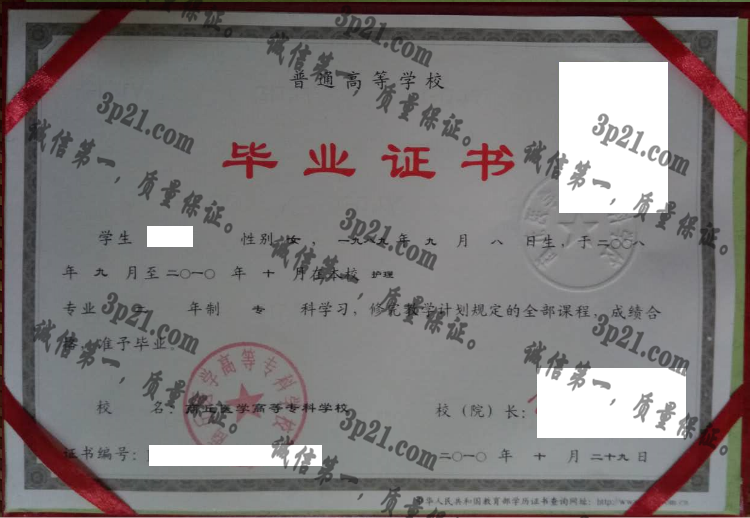 普通高等学校
毕业证书
学生 性别 女，一九八九年九月八日生，于二〇〇八
年九月至二〇一〇年十月在本校 护理
专业 二年制 专科学习，修完教学计划规定的全部课程，成绩合
格，准予毕业。
校名：商丘医学高等专科学校 校（院）长：
证书编号： 二〇一〇年十月二十九日
中华人民共和国教育部学历证书查询网址：http://www.
3p21.com
诚信第一，质量保证。
3p21.com
诚信第一，质量保证。
3p21.com
诚信第一，质量保证。
3p21.com
诚信第一，质量保证。
3p21.com
诚信第一，质量保证。
3p21.com
诚信第一，质量保证。
3p21.com
诚信第一，质量保证。